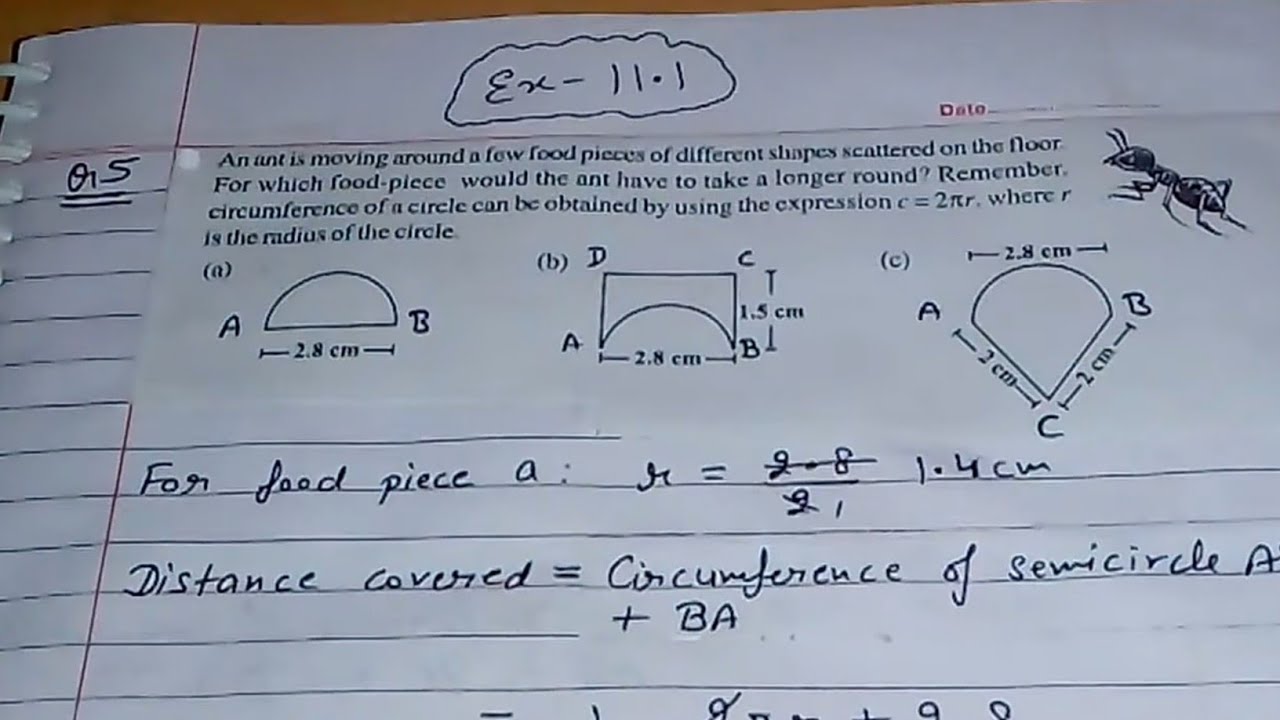 Ex - 11.1
Date
Q.5
An ant is moving around a few food pieces of different shapes scattered on the floor.
For which food-piece would the ant have to take a longer round? Remember,
circumference of a circle can be obtained by using the expression c = 2πr, where r
is the radius of the circle.
(a)
A B
2.8 cm
(b) D C
1.5 cm
A B
2.8 cm
(c)
2.8 cm
A B
2 cm 2 cm
C
For food piece a: r = 2.8/2 1 1.4 cm
Distance covered = Circumference of semicircle A
+ BA